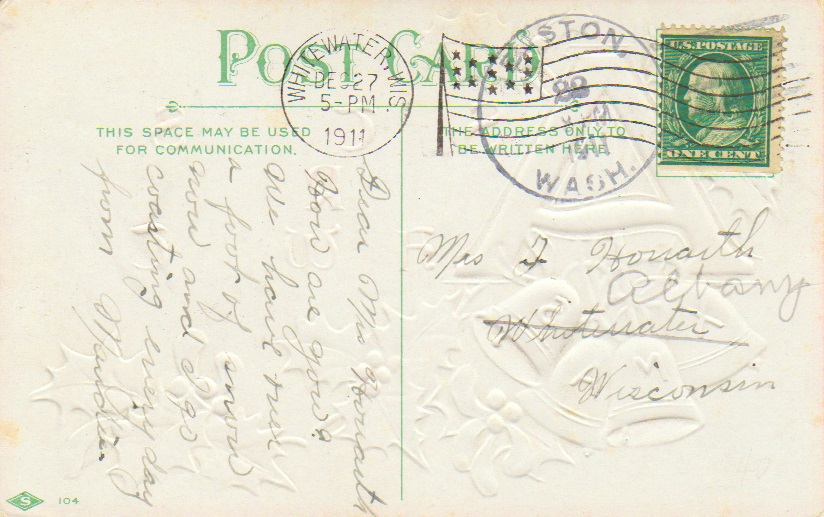 POST CARD
WHITEWATER, WIS
DEC 27
5-PM
1911
WASH.
U.S. POSTAGE
ONE CENT
THIS SPACE MAY BE USED
FOR COMMUNICATION.
THE ADDRESS ONLY TO
BE WRITTEN HERE
Dear Mrs Howarth
How are you?
We have
a foot of snow
now and I go
coasting every day
from
Mrs F Howarth
Albany
Whitewater
Wisconsin
S 104